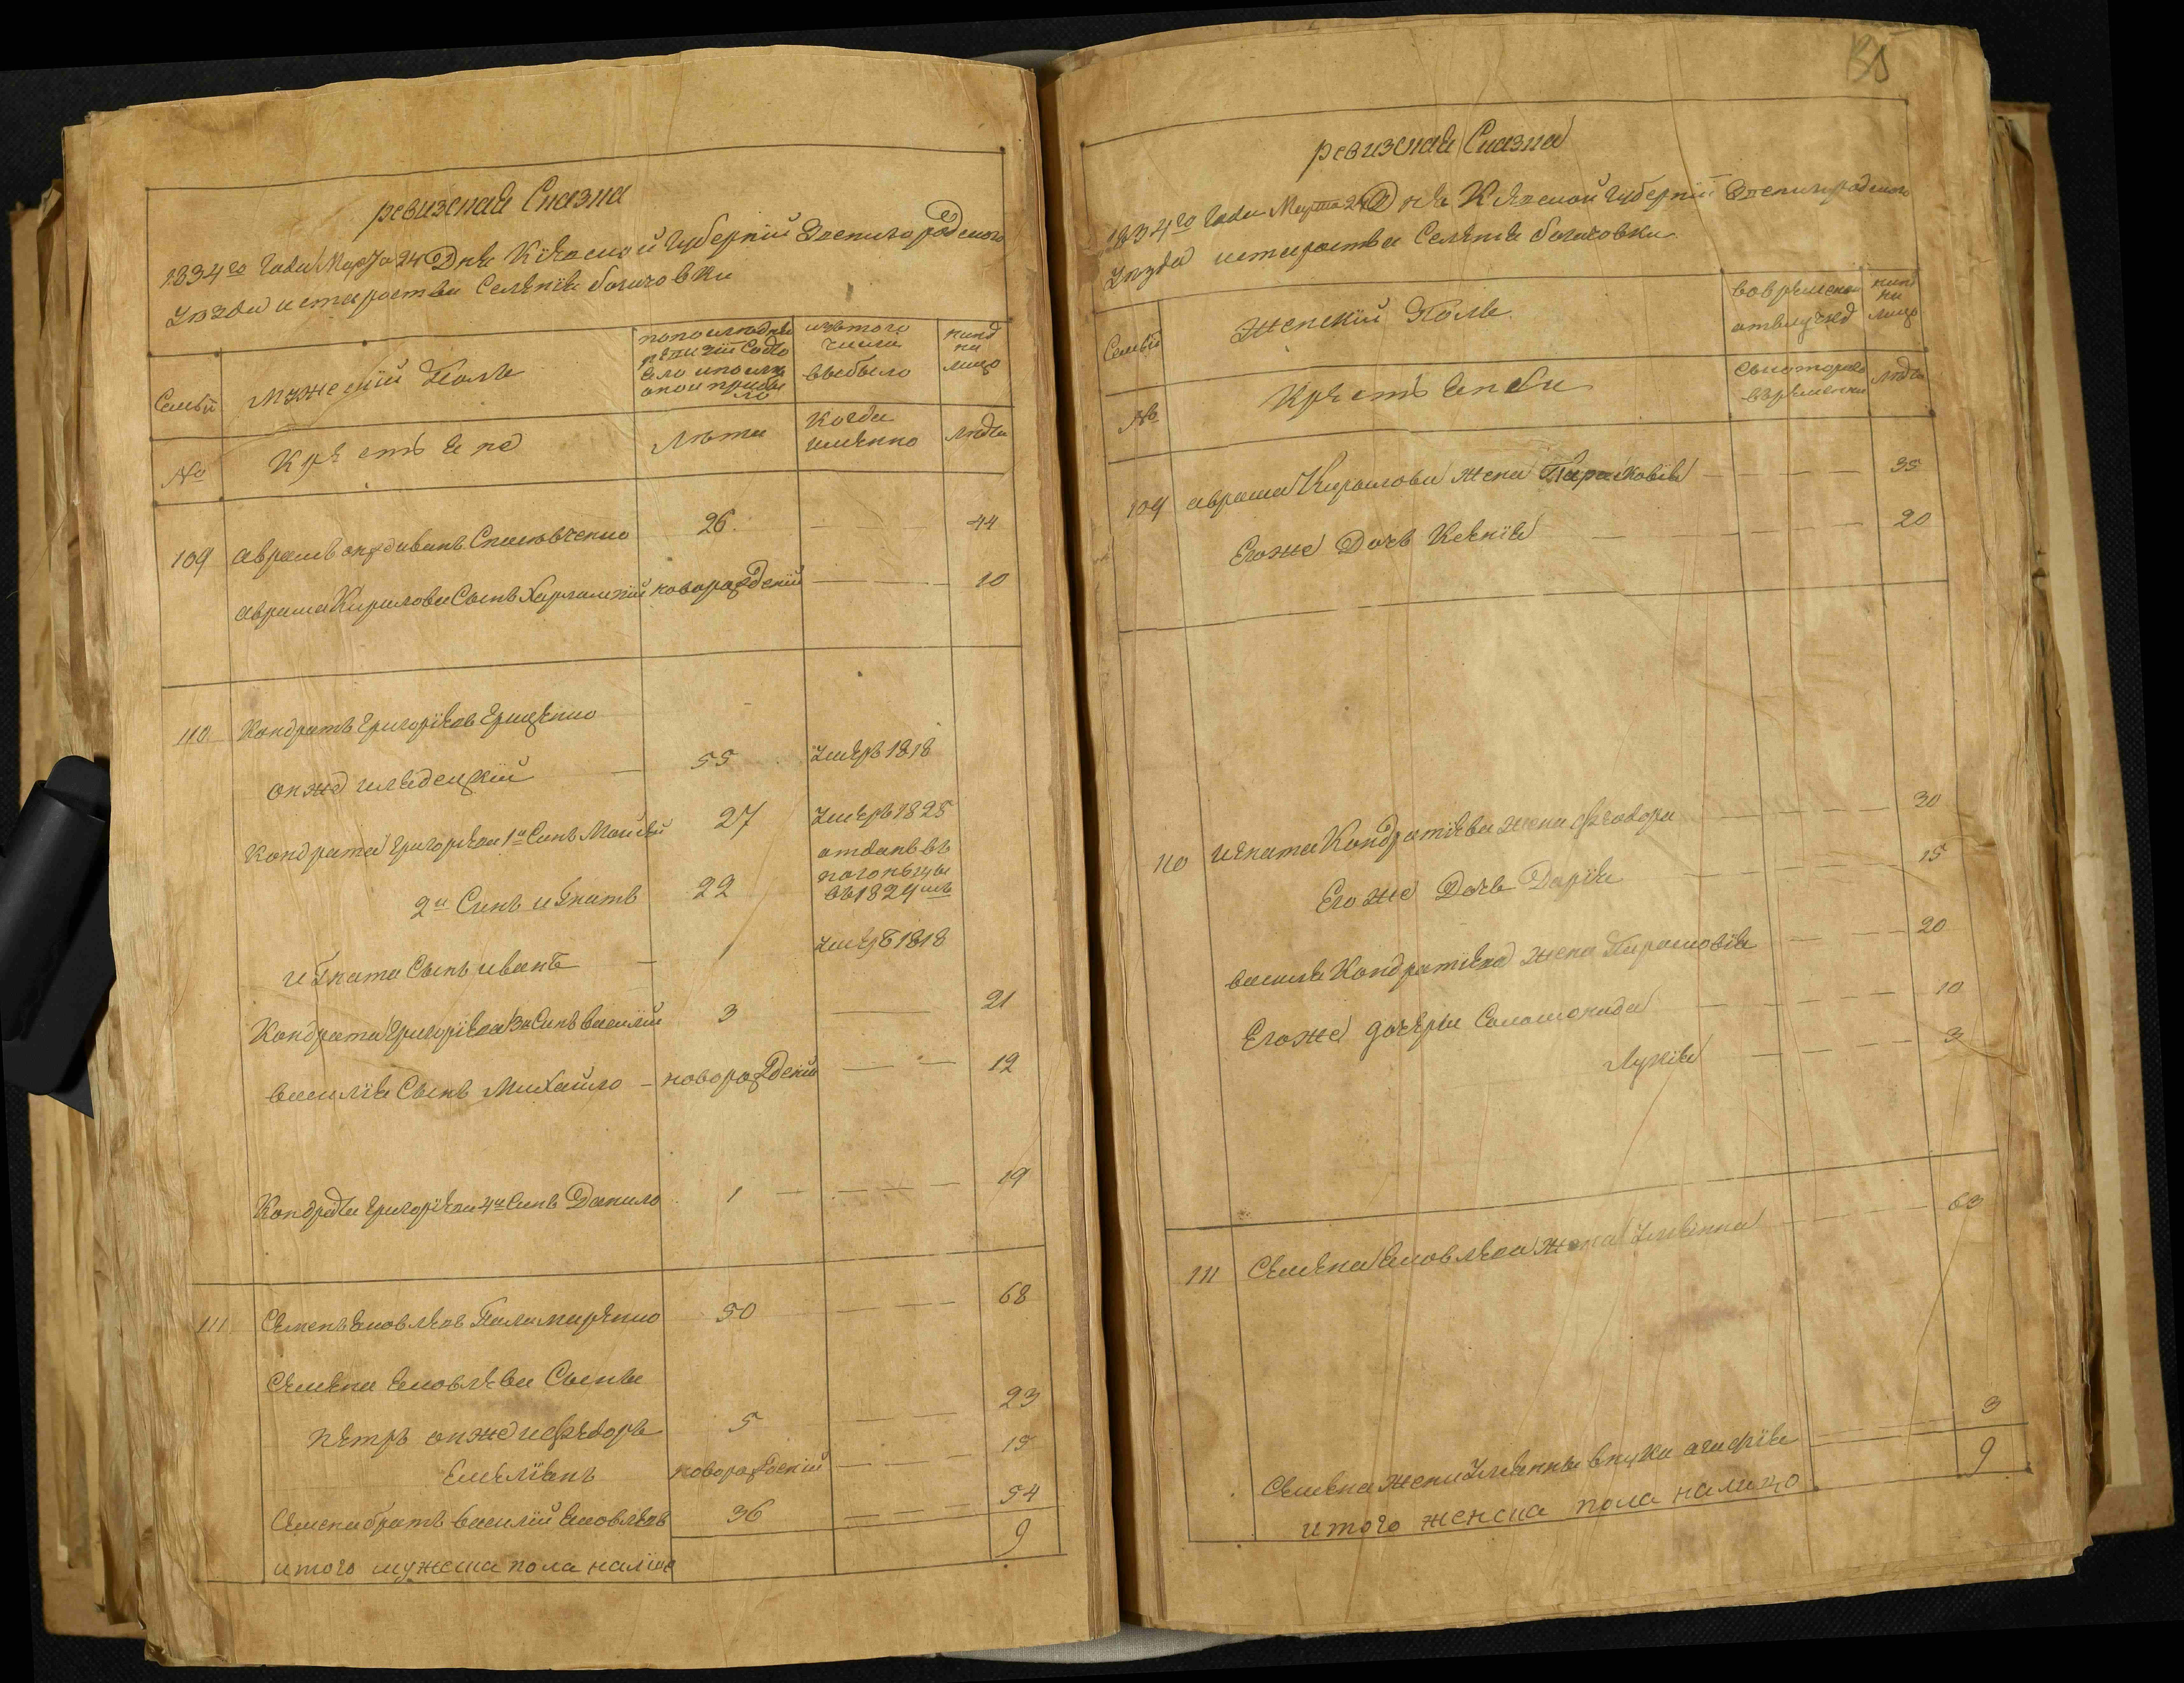 ревизская Сказка
1834го Года Марта 24 Дня Кіевской Губерніи Звенигородского
уезда и староства Селенія богачовки
Семьи
мужескій Полъ
по последней ревизіи Состояло и после оной прибыло
изътого числа выбыло
ныне на лицо
№
Крестьяне
Лета
Когда именно
Лета
109 аврамъ онже иванъ 26 — 44
аврама Кирилова Сынъ Харлампій новорожденій — 10
110 Кондратъ Григоріевъ Гриценко
онже 55 умеръ 1818
Кондрата Григоріева 1й Синъ Моисей 27 умеръ 1825
2й Синъ игнатъ 22 отданъ въ погоньцы въ 1824мъ
игната Сынъ иванъ — 1 умеръ 1818
Кондрата Григоріева 3й Синъ василій 3 — 21
василія Сынъ Михайло — новорожденій — 12
Кондрата Григоріева 4й Синъ Данило 1 — 19
111 Семенъ Яковлевъ Паламаренко 50 — 68
Семена Яковлева Сынъи
петръ онже и федоръ 5 — 23
Емеліянъ новорожденій — 15
Семена братъ василій Яковлевъ 36 — 54
итого мужеска пола налицо 9
35
ревизская Сказка
1834го Года Марта 24 Дня Кіевской Губерніи Звенигородского
уезда и староства Селенія богачовки
Семьи
Женскій Полъ
вовременной отлучке
ныне на лицо
№
Крестьянки
Скоторого времени
Лета
109 аврама Кирилова жена Парасковія — 35
Егоже Дочъ Ксенія — 20
110 игната Кондратіева жена федора — 30
Егоже Дочъ Дарія — 15
василія Кондратіева жена Парасковія — 20
Егоже дочери Саломонида — 10
Лукія — 3
111 Семена Яковлева жена Улянна — 63
Семена жени Улянны внука агафія — 3
итого женска пола налицо 9